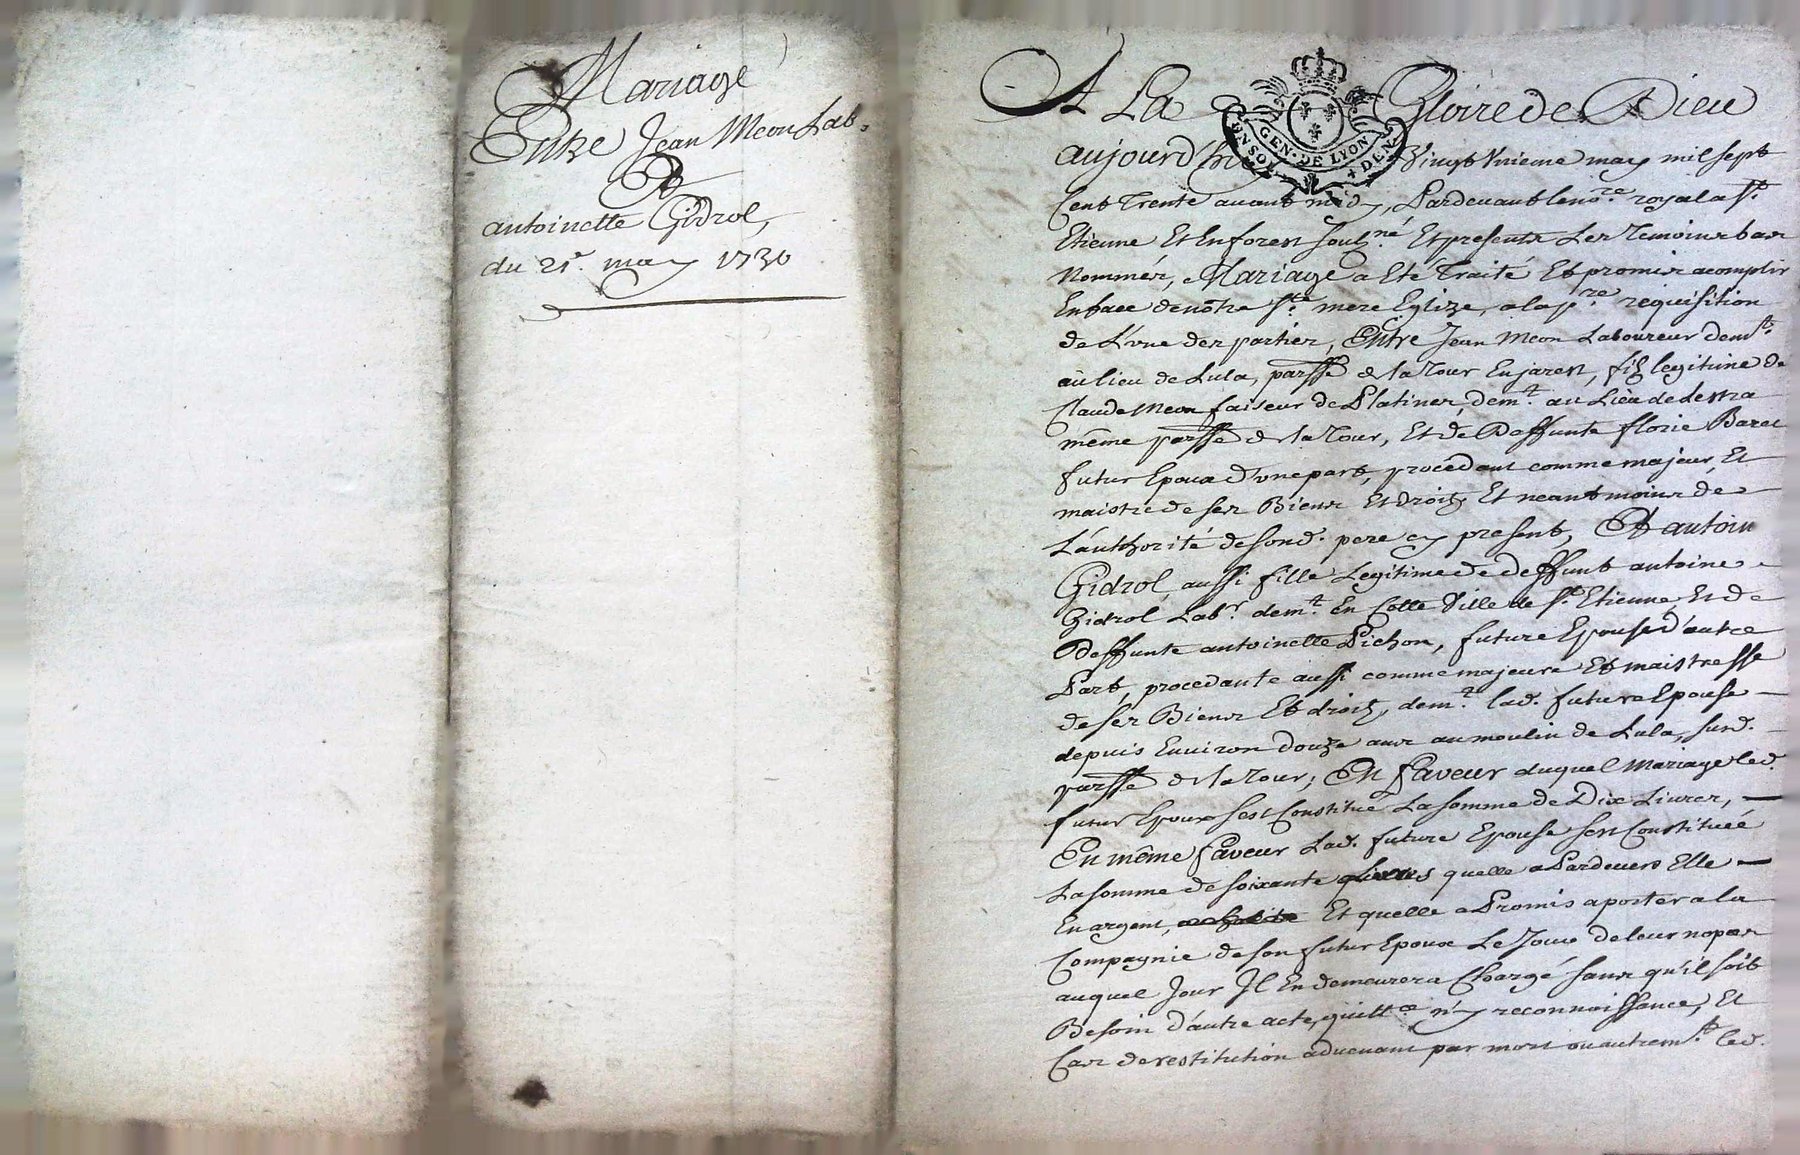 Mariage
Entre Jean Meon Lab.
Et
antoinette Gidrol,
du 21e. may 1730
A La Gloire de Dieu
GEN. DE LYON
aujourd'huy Vingt Unieme may mil sept
Cent Trente avant midy, Pardevant le nore. royal a St.
Etienne Et En forest soubné Et presents Les Temoins bas
Nommés, Mariage a Eté Traité Et promis acomplir
En face de notre Ste. mere Eglize, a la pre. requisition
de L'une des parties, Entre Jean Meon Laboureur demt.
au lieu de Lula, parsse de la Tour En jarest, fils legitime de
Claude Meon faiseur de Platines, demt. au Lieu de
même parsse de la Tour, Et de Deffunte florie
futur Epoux d'une part, procedant comme majeur, Et
maistre de ses Biens Et droits Et neantmoins de
L'authorité de sond. pere cy present, Et antoin
Gidrol, aussi fille Legitime de deffunt antoine
Gidrol Labr. demt. En Cette Ville de St. Etienne, Et de
Deffunte antoinette Pichon, future Epouse d'autre
Part, procedante aussi comme majeure Et maistresse
de ses Biens Et droits, demt. lad. future Epouse
depuis Environ douze ans au moulin de Lula, susd.
parsse de la Tour; En faveur duquel Mariage led.
futur Epoux s'est Constitué La somme de Dix Livres,
En même faveur Lad. future Epouse s'est Constituée
La somme de soixante livres quelle a Pardevers Elle
En argent, Et quelle a Promis aporter a la
Compagnie de son futur Epoux Le Jour de leur nopces
auquel Jour Il En demeurera Chargé sans qu'il soit
Besoin d'autre acte, quittce n'y reconnoissance, Et
Cas de restitution advenant par mort ou autremt. led.